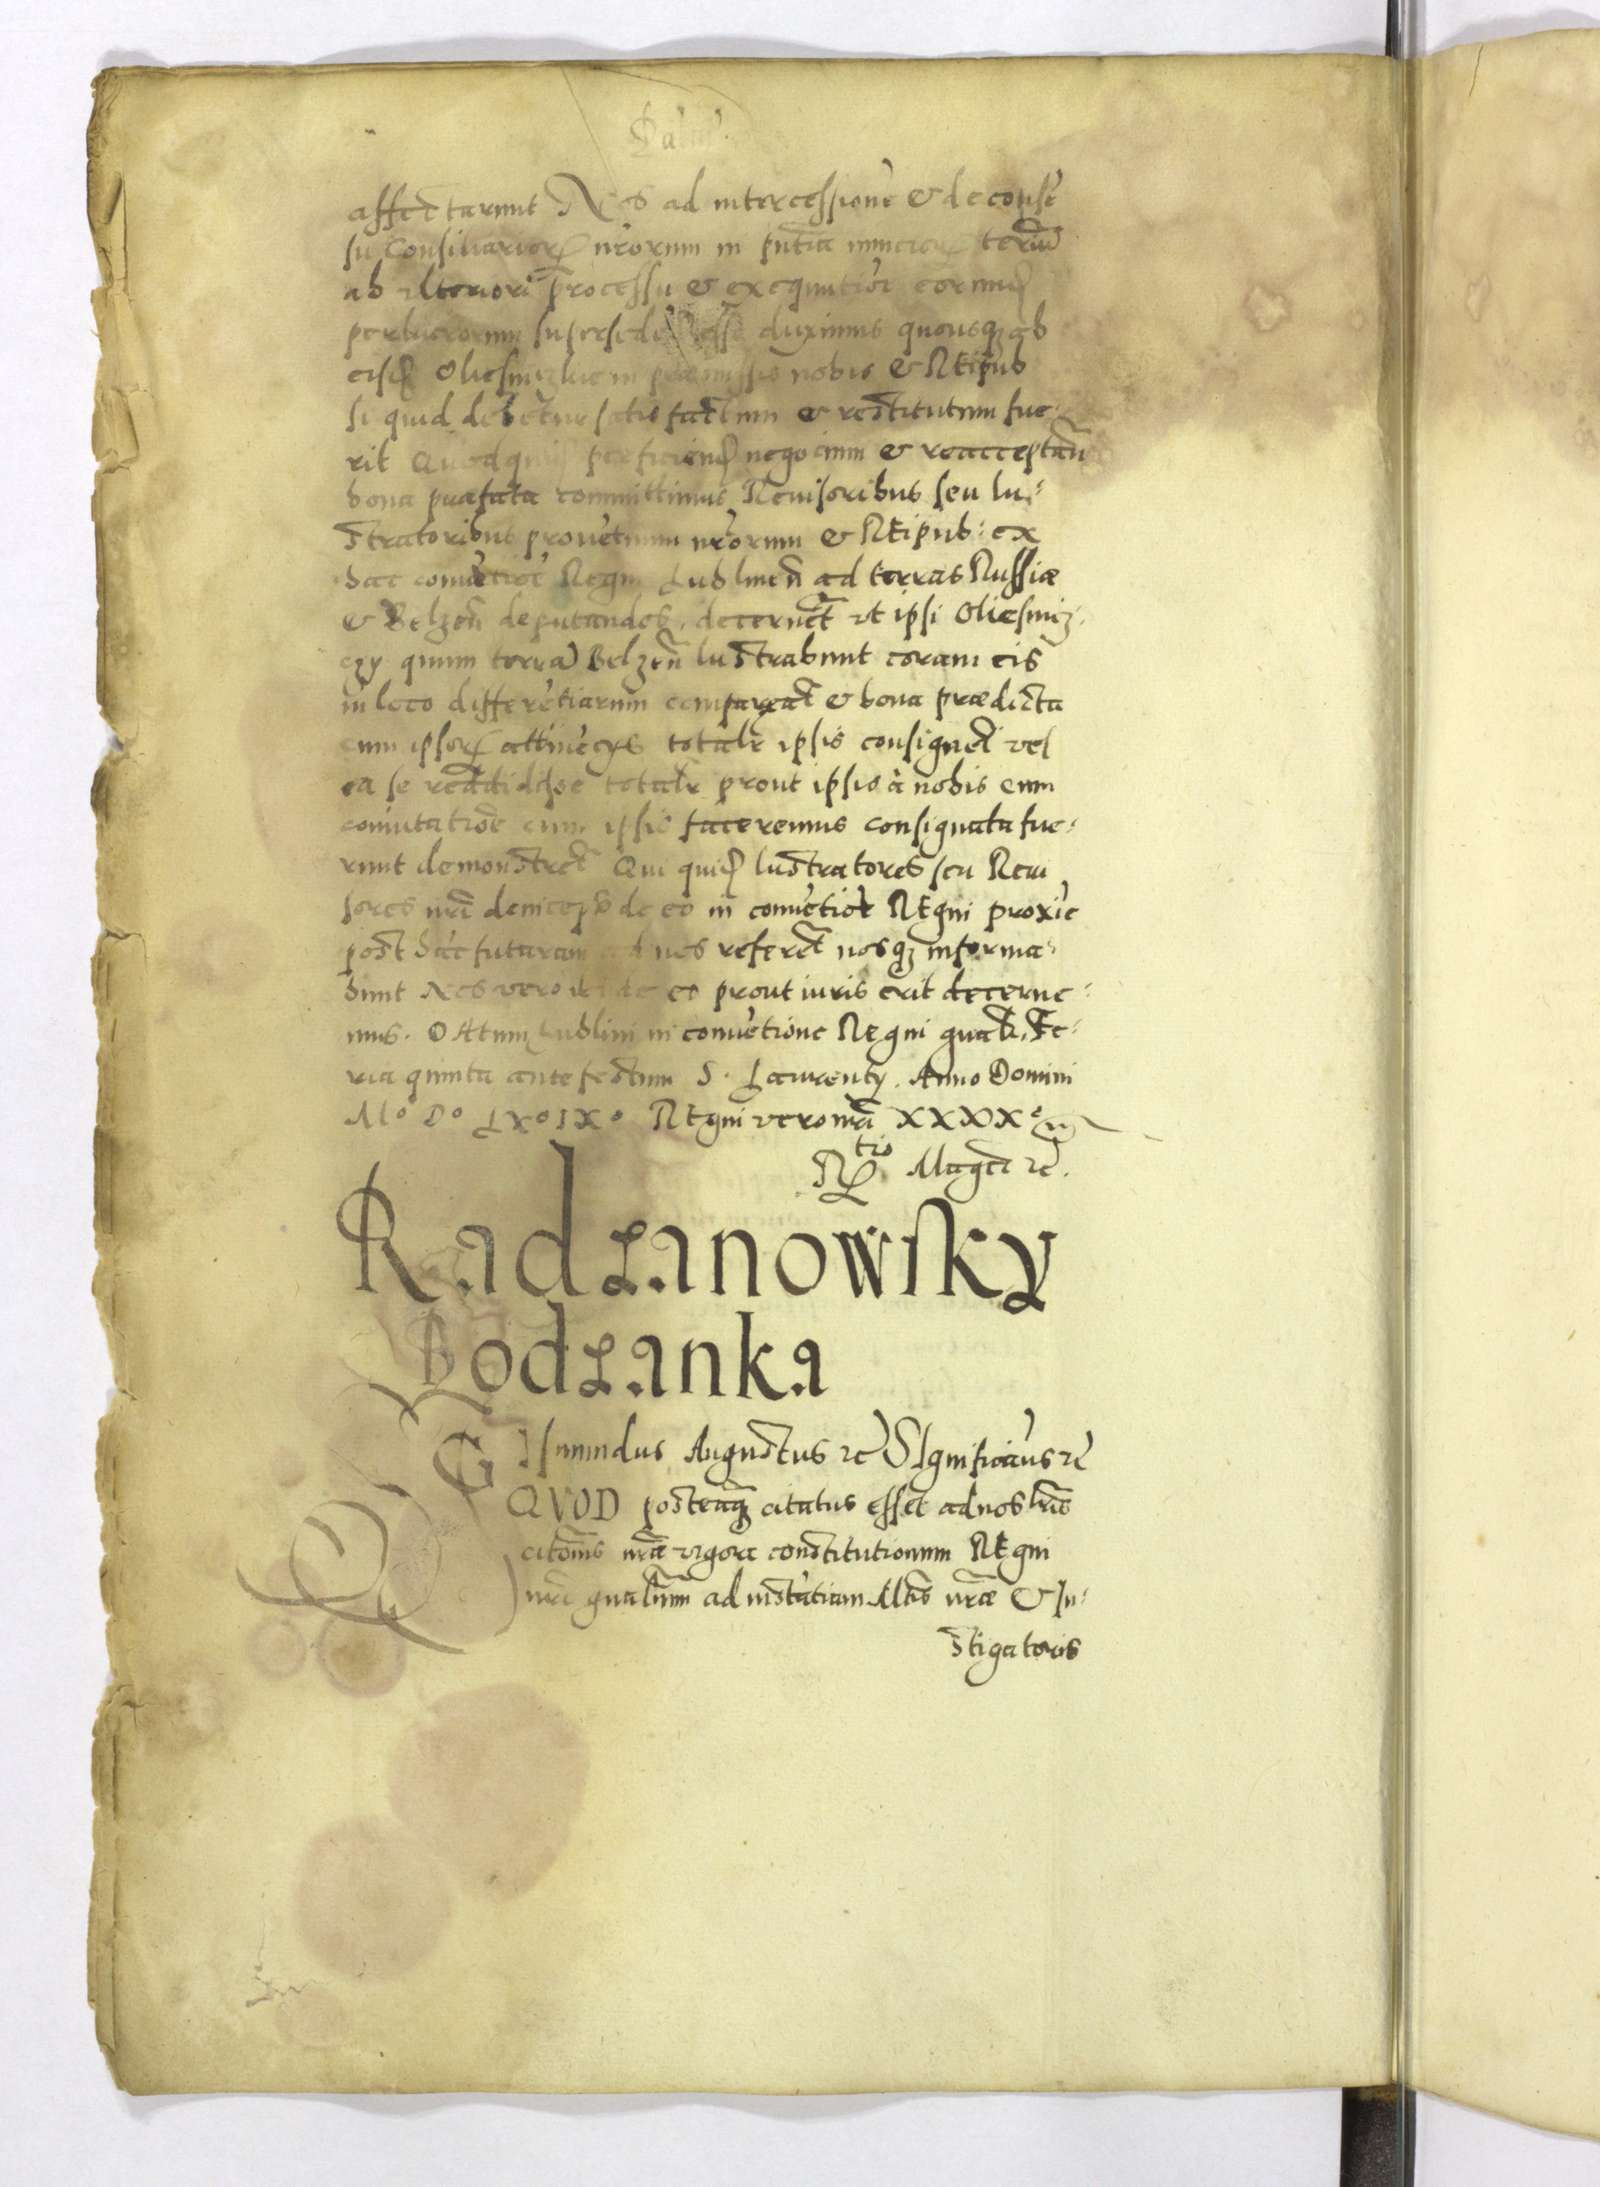 affectarunt Nos ad intercessionē & de consē
su Consiliarior nrorum in pntia nuncior terrarū
ab ulteriori processu & exequutiōe eorund
perlucrorum supersedendū esse duximus quousq ab
eisd Oliesniczkie in præmissis nobis & REipub
si quid debetur satisfactum & restitutum fue-
rit Quod quid perficiend negocium & reacceptan
bona præfata committimus Revisoribus seu lu-
stratoribus provētuum nrorum & REipub: ex
hac convētiōe Regni Lublinen ad terras Russiæ
& Belzen deputandos, decernēt ut ipsi Oliesniz-
czy quum terrā Belzen lustrabunt coram eis
in loco differētiarum compareāt & bona prædicta
cum ipsor attinēcys totalr ipsis consignēt vel
ea se reddidisse totalr prout ipsis à nobis cum
comutatiōe cum ipsis faceremus consignata fue-
runt demonstrēt Qui quid lustratores seu Revi
sores nri de eo in convētiōe REgni proxie
post hāc futuram ad nos referēt nosq informa-
bunt Nos vero de eo prout iuris erit decerne-
mus. DAtum Lublini in convētione REgni gnali, Fe-
ria quinta ante festum S. Laurenty. Anno Domini
Mº Dº LXº IXº REgni vero nri XXXXº
Rtio Magci etc.
Radzanowsky
Bodzanka
SIgismundus Augustus etc SIgnificamus etc
QVOD posteaq citatus esset ad nos lris
citōnis nræ vigore constitutionum REgni
nri gnalium ad instātiam Mtis nræ & In-
stigatoris